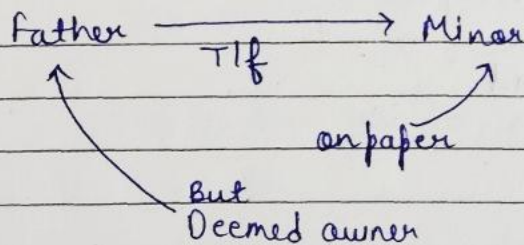 Father Minor
T/f
on paper
But
Deemed owner